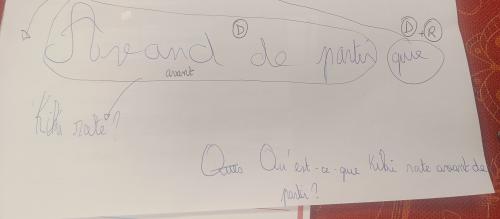 D D + R
Avand de partir que
avant
Kiki rate ?
Qu'est-ce-que Kiki rate avant de
partir ?